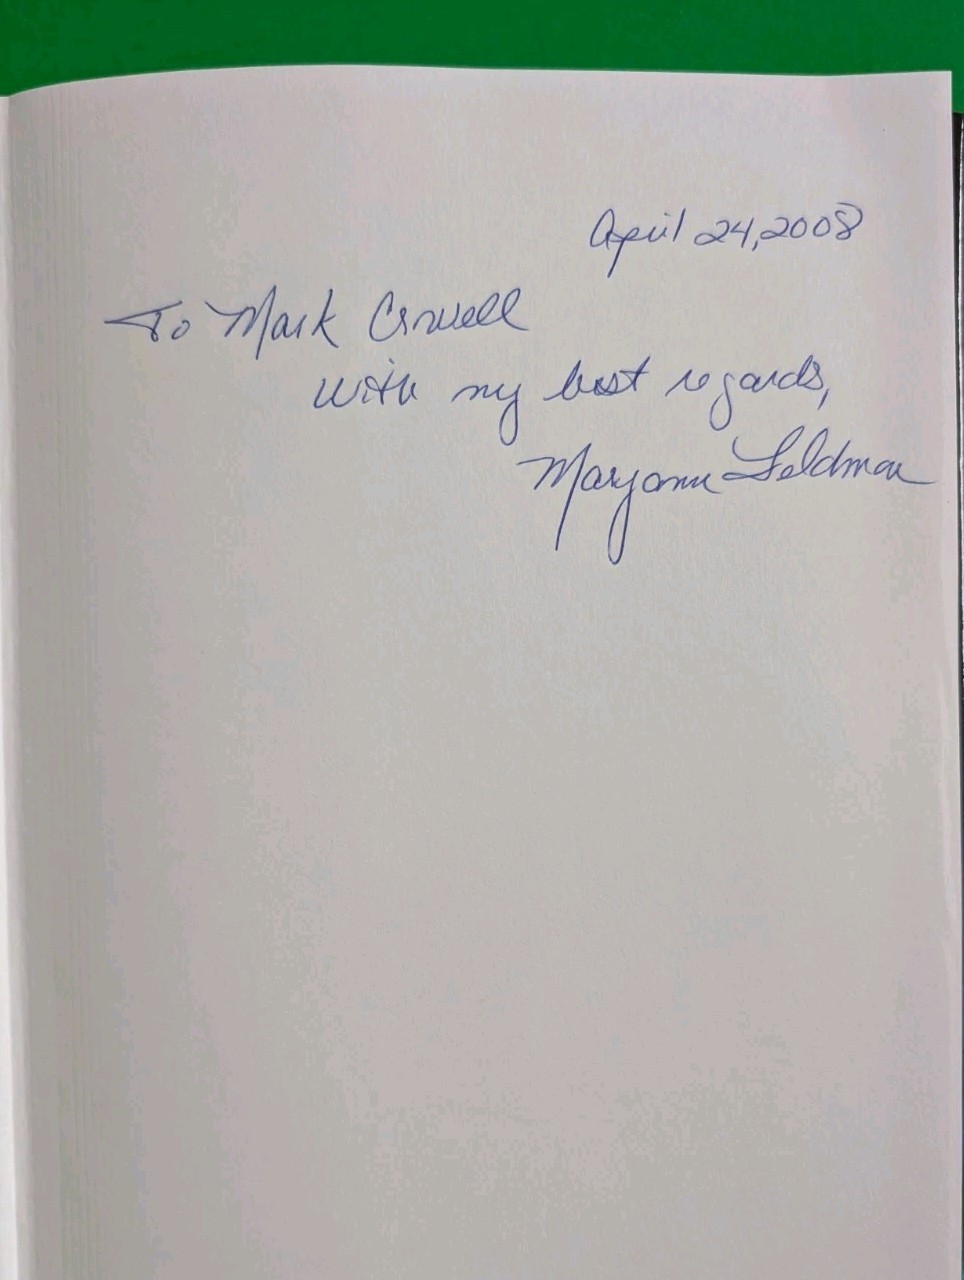 April 24, 2008
To Mark Crowell
with my best regards,
Maryann Feldman